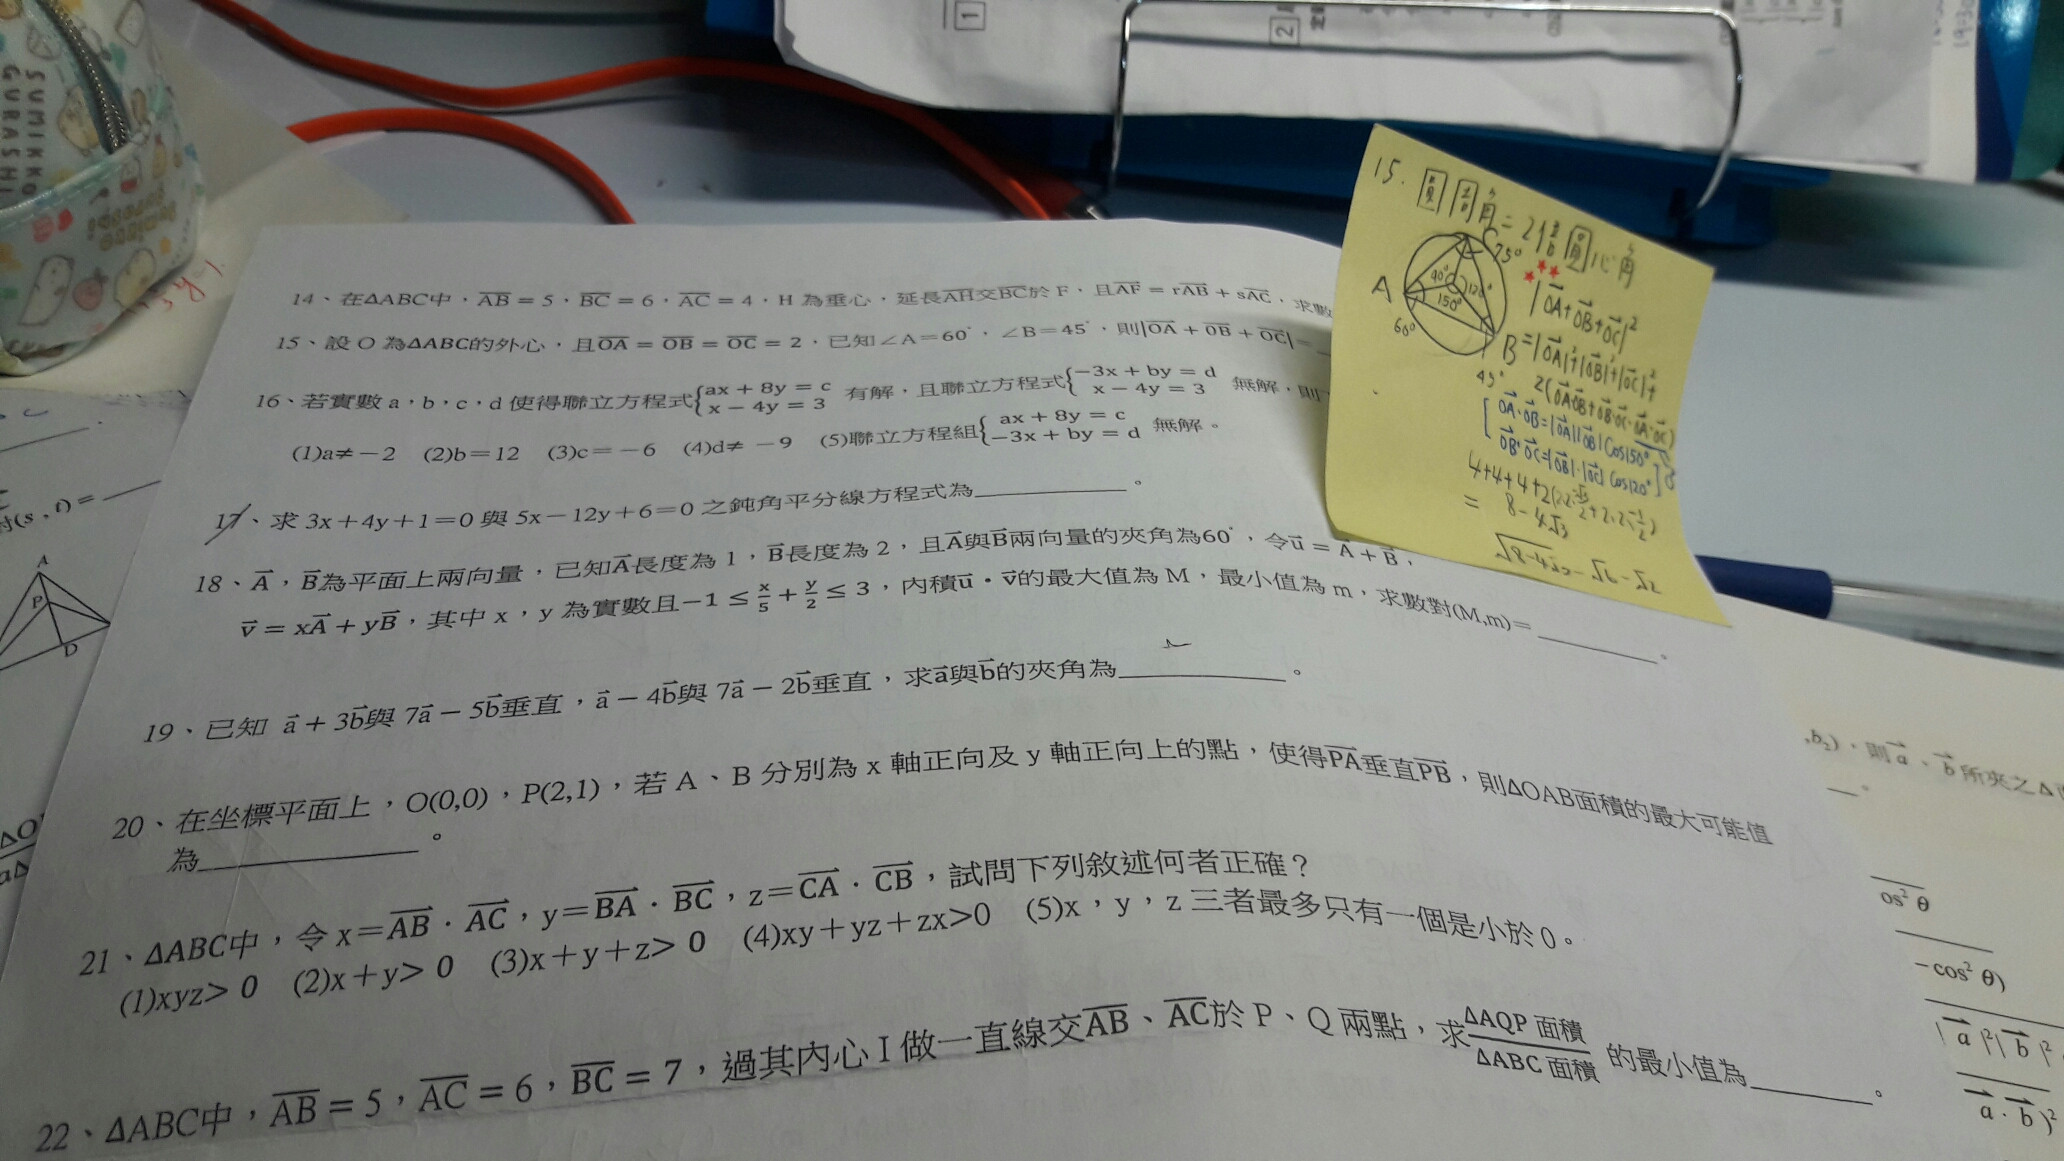 SUMIKKO
GURASHI
1
2
14、在ΔABC中，AB = 5，BC = 6，AC = 4，H 為垂心，延長AH交BC於 F，且AF = rAB + sAC，求數
15、設 O 為ΔABC的外心，且OA = OB = OC = 2，已知∠A=60°，∠B=45°，則|OA + OB + OC|=
16、若實數 a，b，c，d 使得聯立方程式{ax + 8y = c x − 4y = 3 有解，且聯立方程式{−3x + by = d x − 4y = 3 無解，則
(1)a≠−2 (2)b=12 (3)c=−6 (4)d≠ −9 (5)聯立方程組{ax + 8y = c −3x + by = d 無解。
17、求 3x+4y+1=0 與 5x−12y+6=0 之鈍角平分線方程式為________。
18、A，B為平面上兩向量，已知A長度為 1，B長度為 2，且A與B兩向量的夾角為60°，令u = A + B，
v = xA + yB，其中 x，y 為實數且−1 ≤ x/5 + y/2 ≤ 3，內積u・v的最大值為 M，最小值為 m，求數對(M,m)= ________。
19、已知 a + 3b與 7a − 5b垂直，a − 4b與 7a − 2b垂直，求a與b的夾角為________。
20、在坐標平面上，O(0,0)，P(2,1)，若 A、B 分別為 x 軸正向及 y 軸正向上的點，使得PA垂直PB，則ΔOAB面積的最大可能值
為________。
21、ΔABC中，令 x=AB・AC，y=BA・BC，z=CA・CB，試問下列敘述何者正確？
(1)xyz> 0 (2)x+y> 0 (3)x+y+z> 0 (4)xy+yz+zx>0 (5)x，y，z 三者最多只有一個是小於 0。
22、ΔABC中，AB = 5，AC = 6，BC = 7，過其內心 I 做一直線交AB、AC於 P、Q 兩點，求ΔAQP 面積/ΔABC 面積 的最小值為________。
15.
角=2倍圓心角
C 75°
A
60°
B
45°
90°
120°
150°
|OA+OB+OC|²
=|OA|²+|OB|²+|OC|²+
2(OA·OB+OB·OC+OA·OC)
OA·OB=|OA||OB|cos150°
OB·OC=|OB|·|OC| cos120°
= 8-4√3
√8-4√3=√6-√2
A
P
D
(s，t) =
，b₂)，則a、b所夾之Δ
os² θ
−cos² θ)
|a|²|b|²
a·b)²